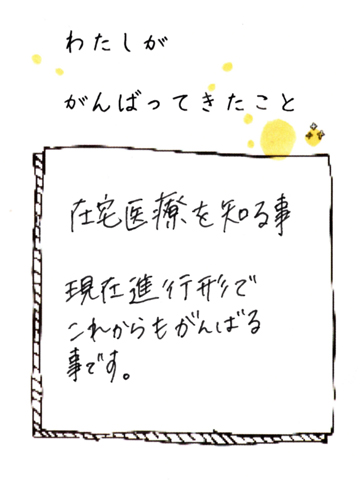 わたしが
がんばってきたこと
在宅医療を知る事
現在進行形で
これからもがんばる
事です。